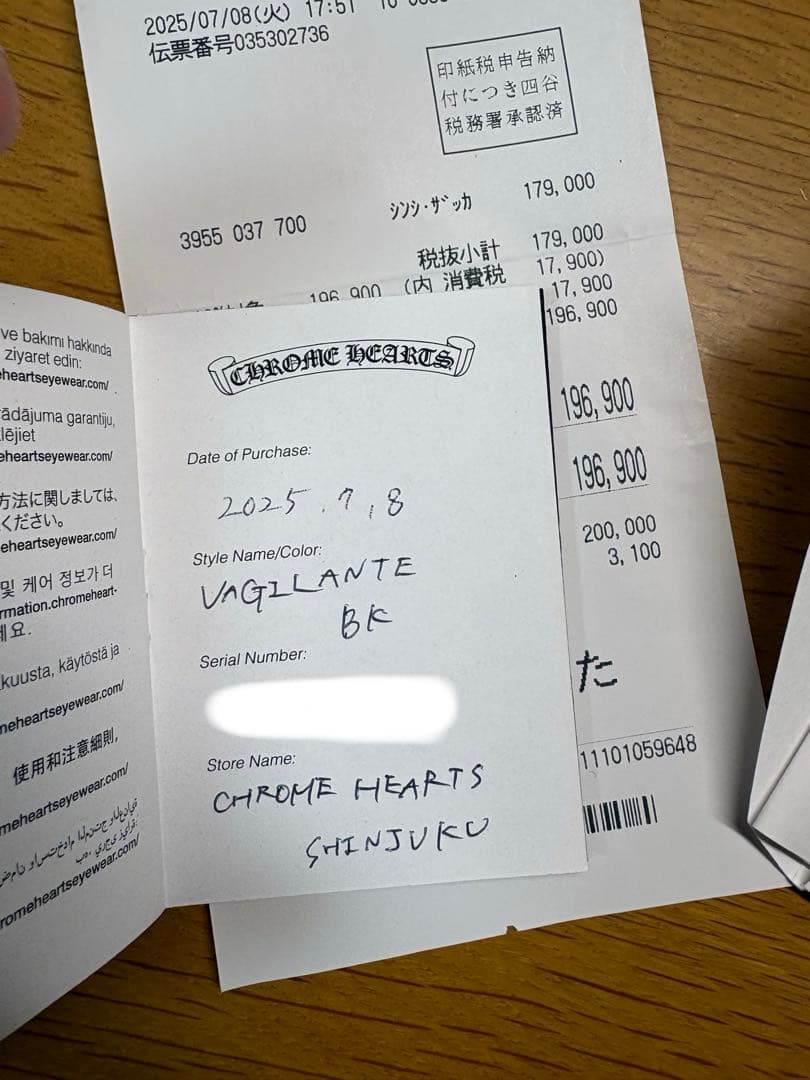 2025/07/08(火) 17:51
伝票番号035302736
印紙税申告納
付につき四谷
税務署承認済
3955 037 700 シンシ・ザッカ 179,000
税抜小計 179,000
196,900 (内 消費税 17,900)
17,900
196,900
196,900
196,900
200,000
3,100
た
11101059648
ve bakımı hakkında
ziyaret edin:
heartseyewear.com/
garantiju,
eheartseyewear.com/
方法に関しましては、
ください。
eheartseyewear.com/
및 케어 정보가 더
rmation.chromeheart-
요.
kuusta, käytöstä ja
meheartseyewear.com/
使用和注意細則,
meheartseyewear.com/
romeheartseyewear.com/
CHROME HEARTS
Date of Purchase:
2025.7.8
Style Name/Color:
VAGILANTE
BK
Serial Number:
Store Name:
CHROME HEARTS
SHINJUKU